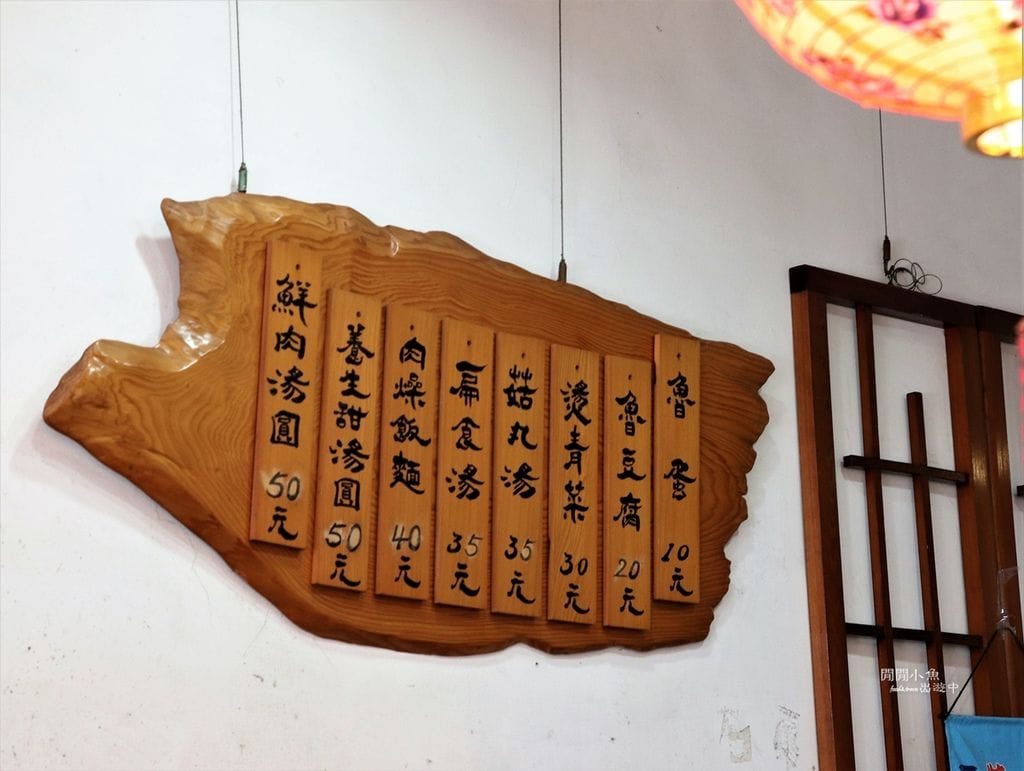 鮮肉湯圓 50元
養生甜湯圓 50元
肉燥飯麵 40元
扁食湯 35元
菇丸湯 35元
燙青菜 30元
魯豆腐 20元
魯蛋 10元
閒閒小魚
出遊中